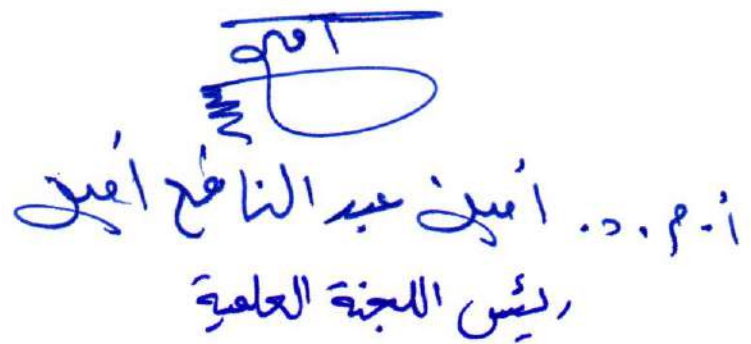 أمين
أ.م.د. أمين عبد النافع أمين
رئيس اللجنة العلمية